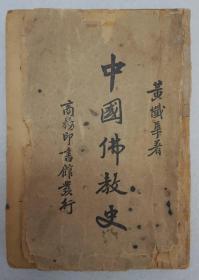 黃懺華著
中國佛教史
商務印書館發行